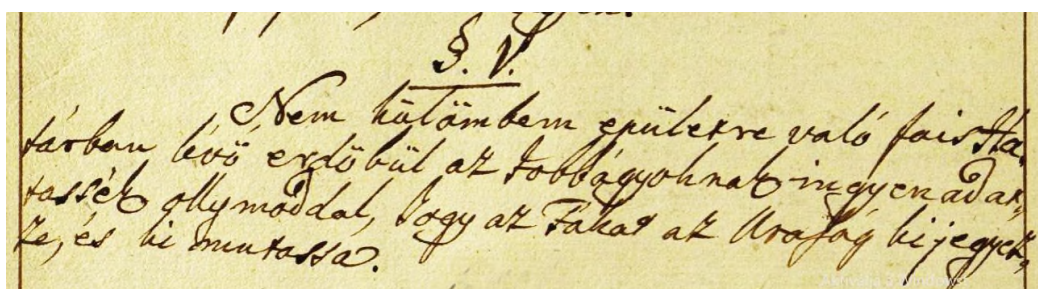 §. V.
Nem külömbem epületre való fa is Ha,
tárban lévő erdőbül az Jobbágyoknak ingyen adat,
tassék olly móddal, hogy az Fákat az Uraság ki jegyez,
ze, és ki mutassa.